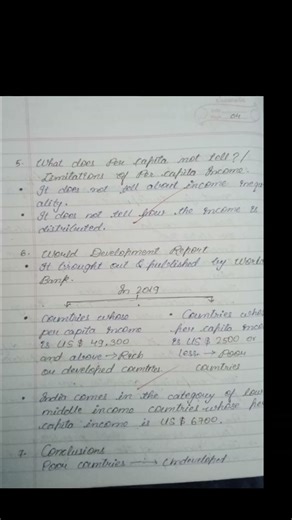 04
5. What does Per Capita not tell?/
Limitations of Per Capita Income
• It does not tell about income inequ
ality.
• It does not tell how the income is
distributed.
6. World Development Report
• It brought out & published by World
Bank.
In 2019
• Countries whose
per capita income
is US $ 49,300
and above → Rich
or developed countries
• Countries whose
per capita income
is US $ 2500 or
less → Poor
countries
• India comes in the category of low
middle income countries whose per
capita income is US $ 6700.
7. Conclusions
Poor countries → Undeveloped